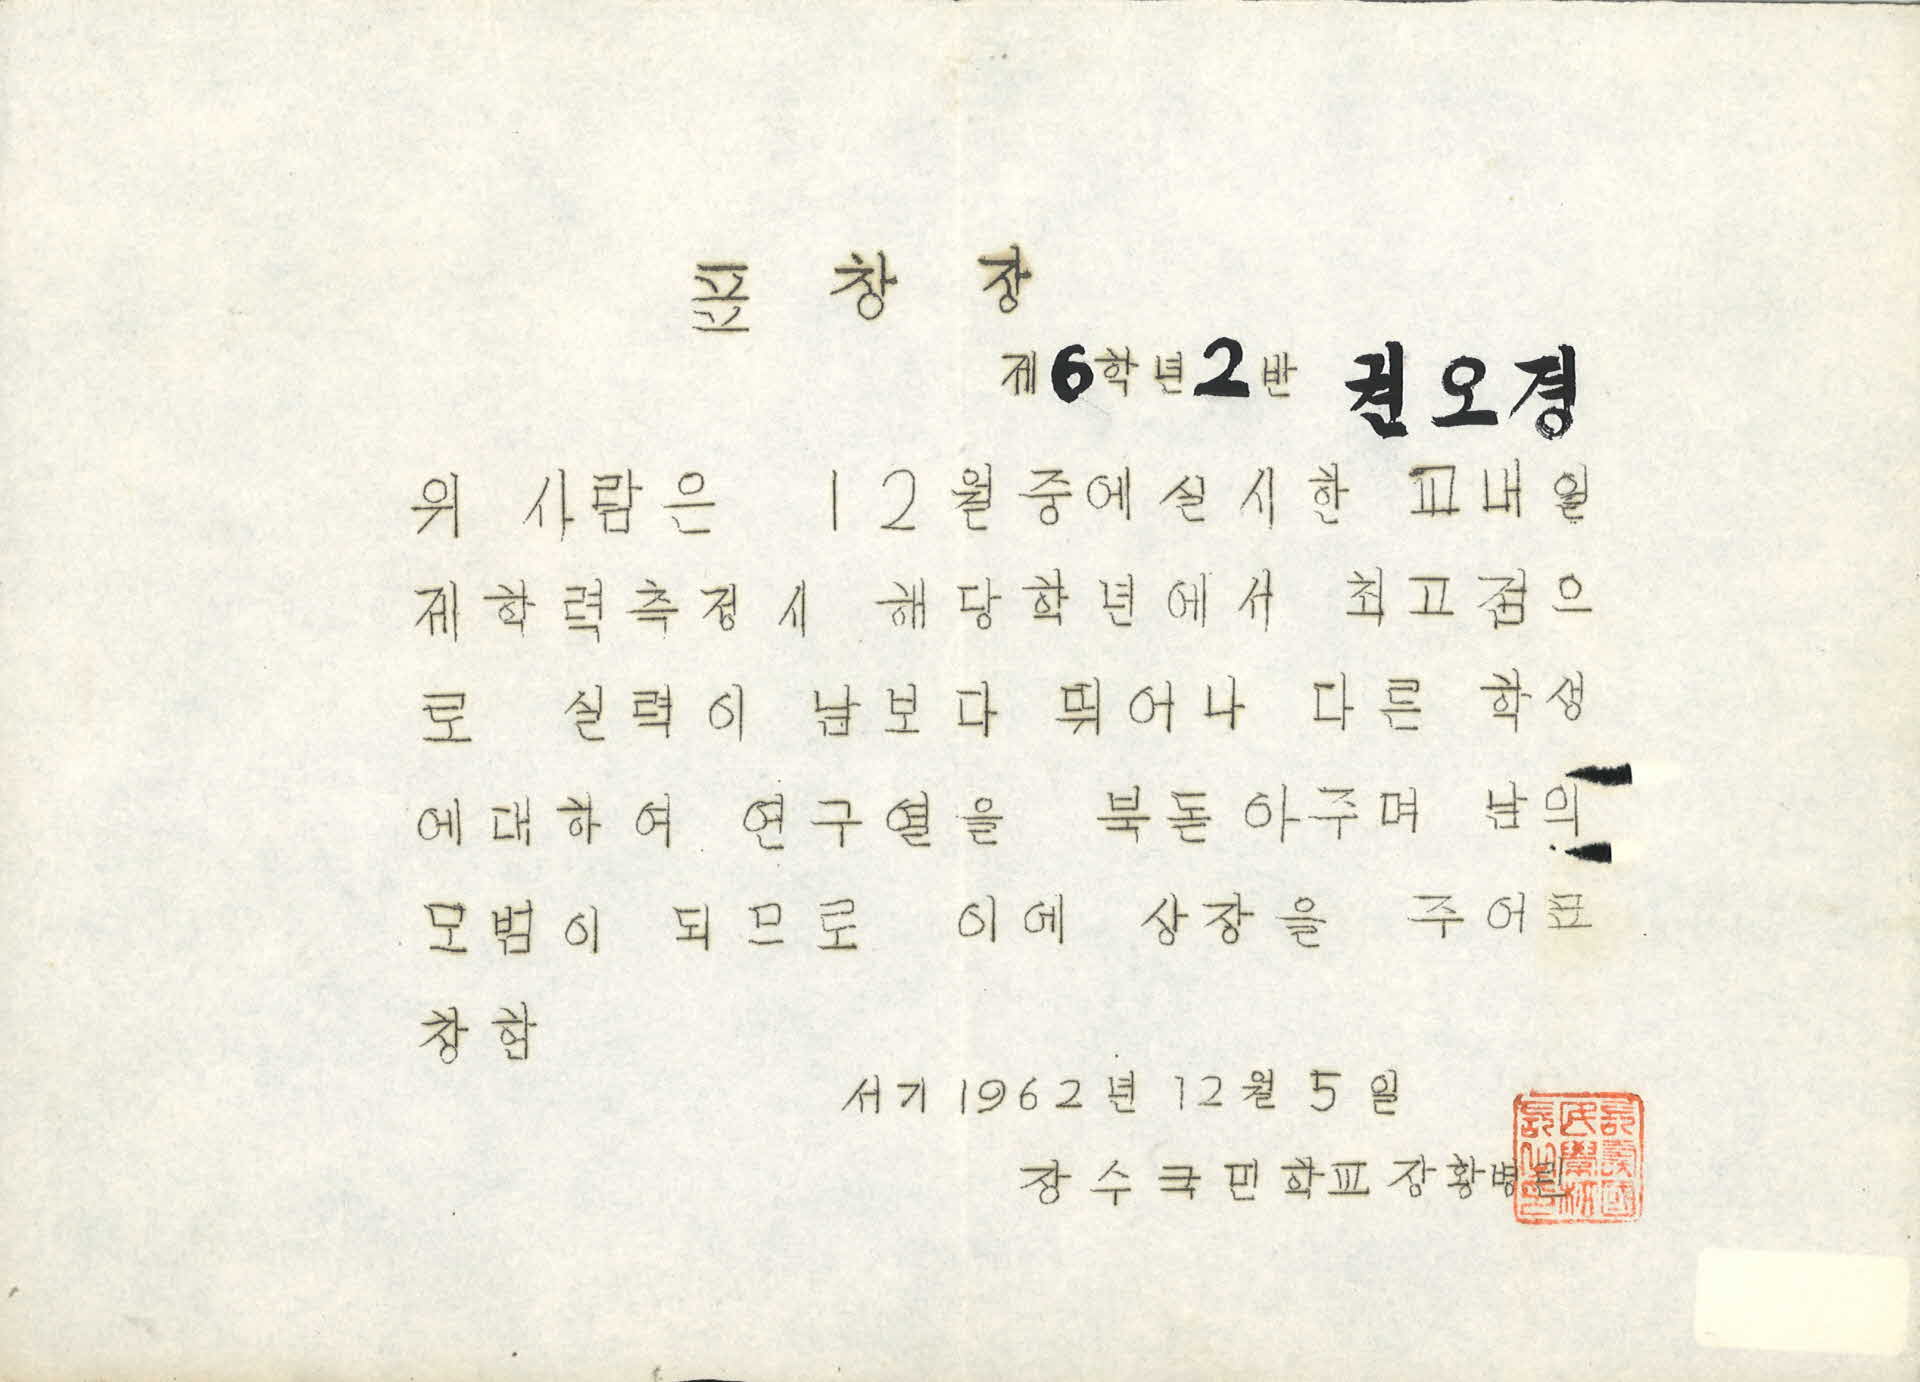 표창장
제6학년2반 권오경
위 사람은 12월중에실시한 교내일
제학력측정시 해당학년에서 최고점으
로 실력이 남보다 뛰어나 다른 학생
에대하여 연구열을 북돋아주며 남의
모범이 되므로 이에 상장을 주어표
창함
서기 1962년 12월 5일
장수국민학교장황병